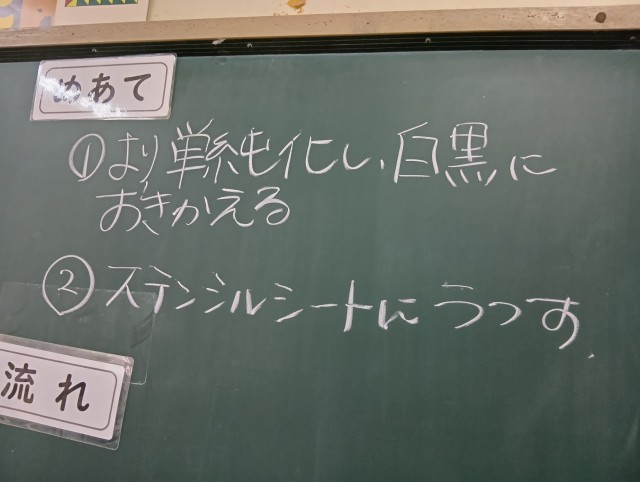 めあて
①より単純化し、白黒に
おきかえる
②ステンシルシートにうつす.
流れ